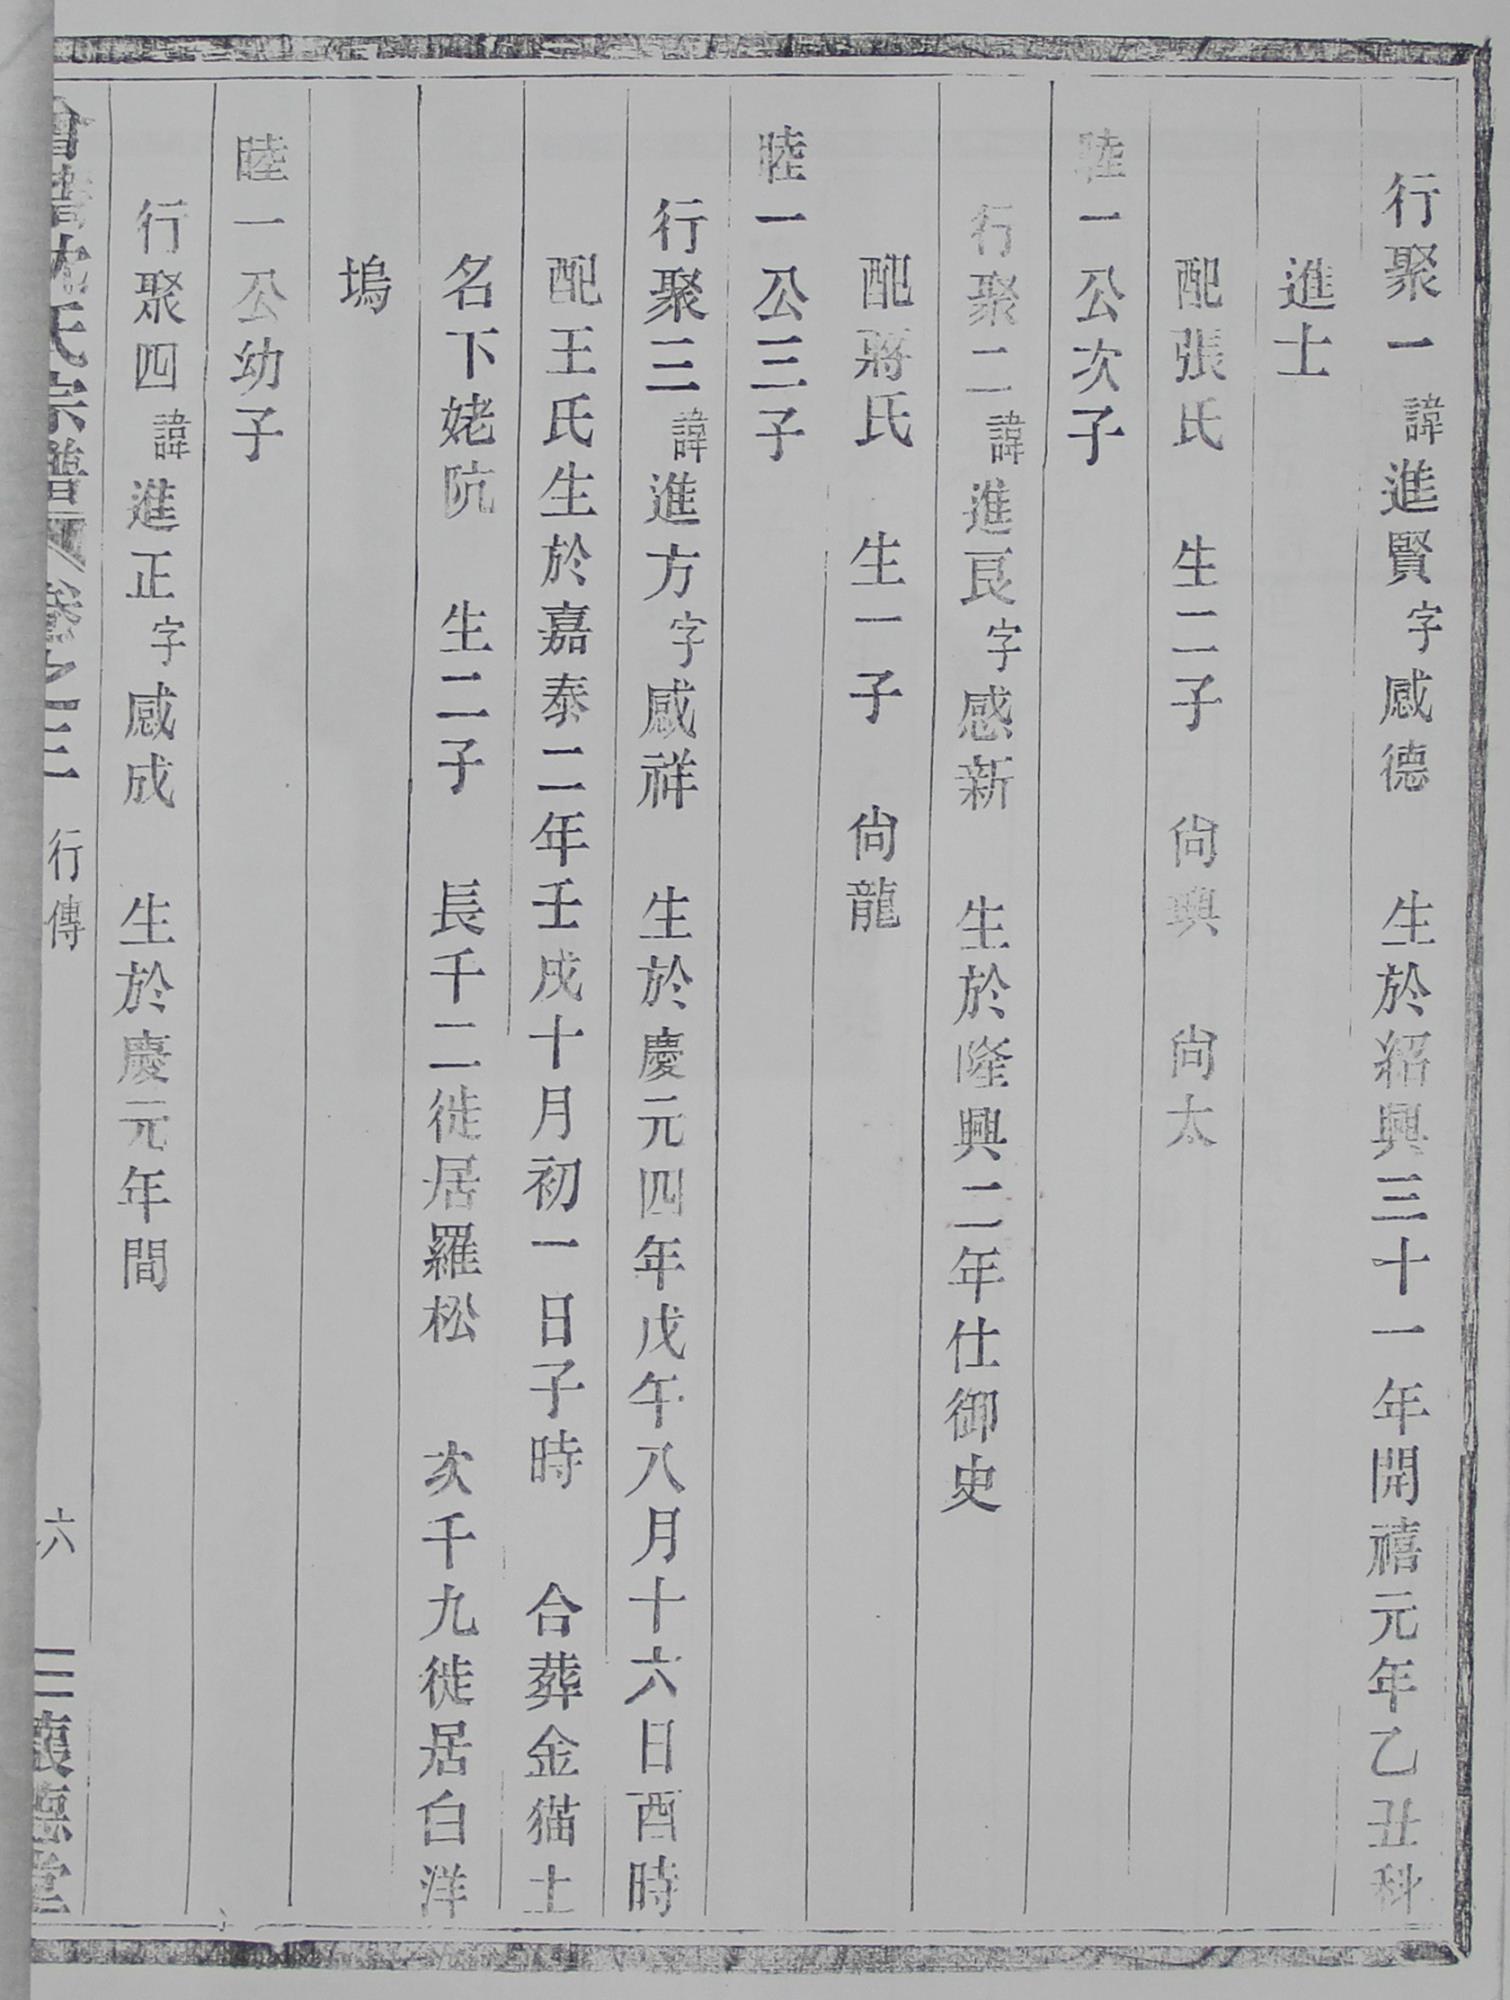 行聚一諱進賢字感德　生於紹興三十一年開禧元年乙丑科
進士
配張氏　生二子　尙興　尙太
睦一公次子
行聚二諱進良字感新　生於隆興二年仕御史
配蔣氏　生一子　尙龍
睦一公三子
行聚三諱進方字感祥　生於慶元四年戊午八月十六日酉時
配王氏生於嘉泰二年壬戌十月初一日子時　合葬金猫土
名下姥阬　生二子　長千二徙居羅松　次千九徙居白洋
塢
睦一公幼子
行聚四諱進正字感成　生於慶元年間
沈氏宗譜　卷之三　行傳　六　懷德堂